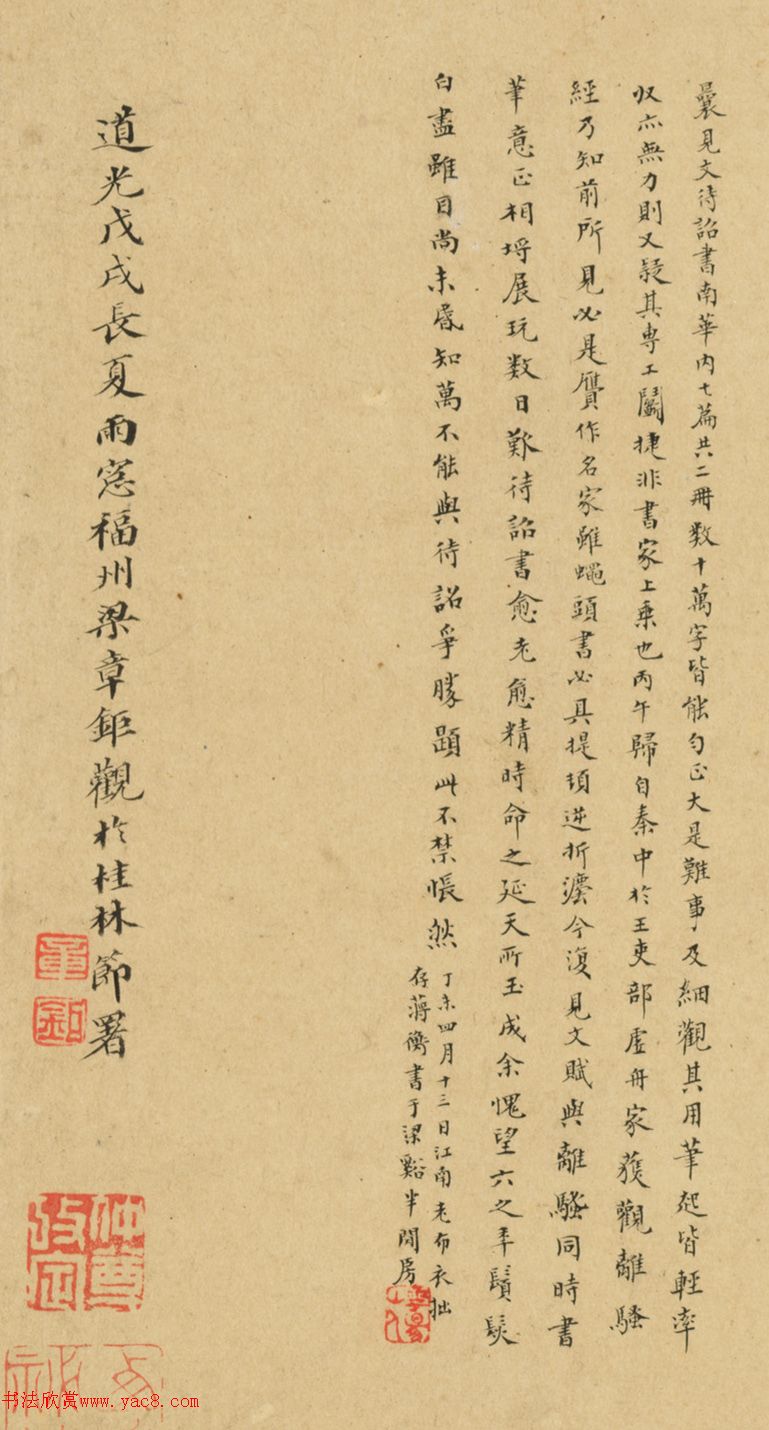 曩見文待詔書南華內七篇共二冊数十萬字皆能勻正大是難事及細觀其用筆起皆輕率
収亦無力則又疑其専工鬭捷非書家上乗也丙午歸自秦中於王吏部虛舟家獲觀離騷
經乃知前所見必是贋作名家雖蠅頭書必具提頓逆折澀今復見文賦與離騷同時書
筆意正相埒展玩数日難待詔書愈老愈精時命之延天所玉成余愧望六之年鬚髮
白盡雖目尚未昏知萬不能與待詔爭勝題此不禁悵然
丁未四月十三日江南老布衣拙
存蔣衡書于梁谿半閒房
道光戊戌長夏雨窓福州梁章鉅觀於桂林節署
书法欣赏www.yac8.com